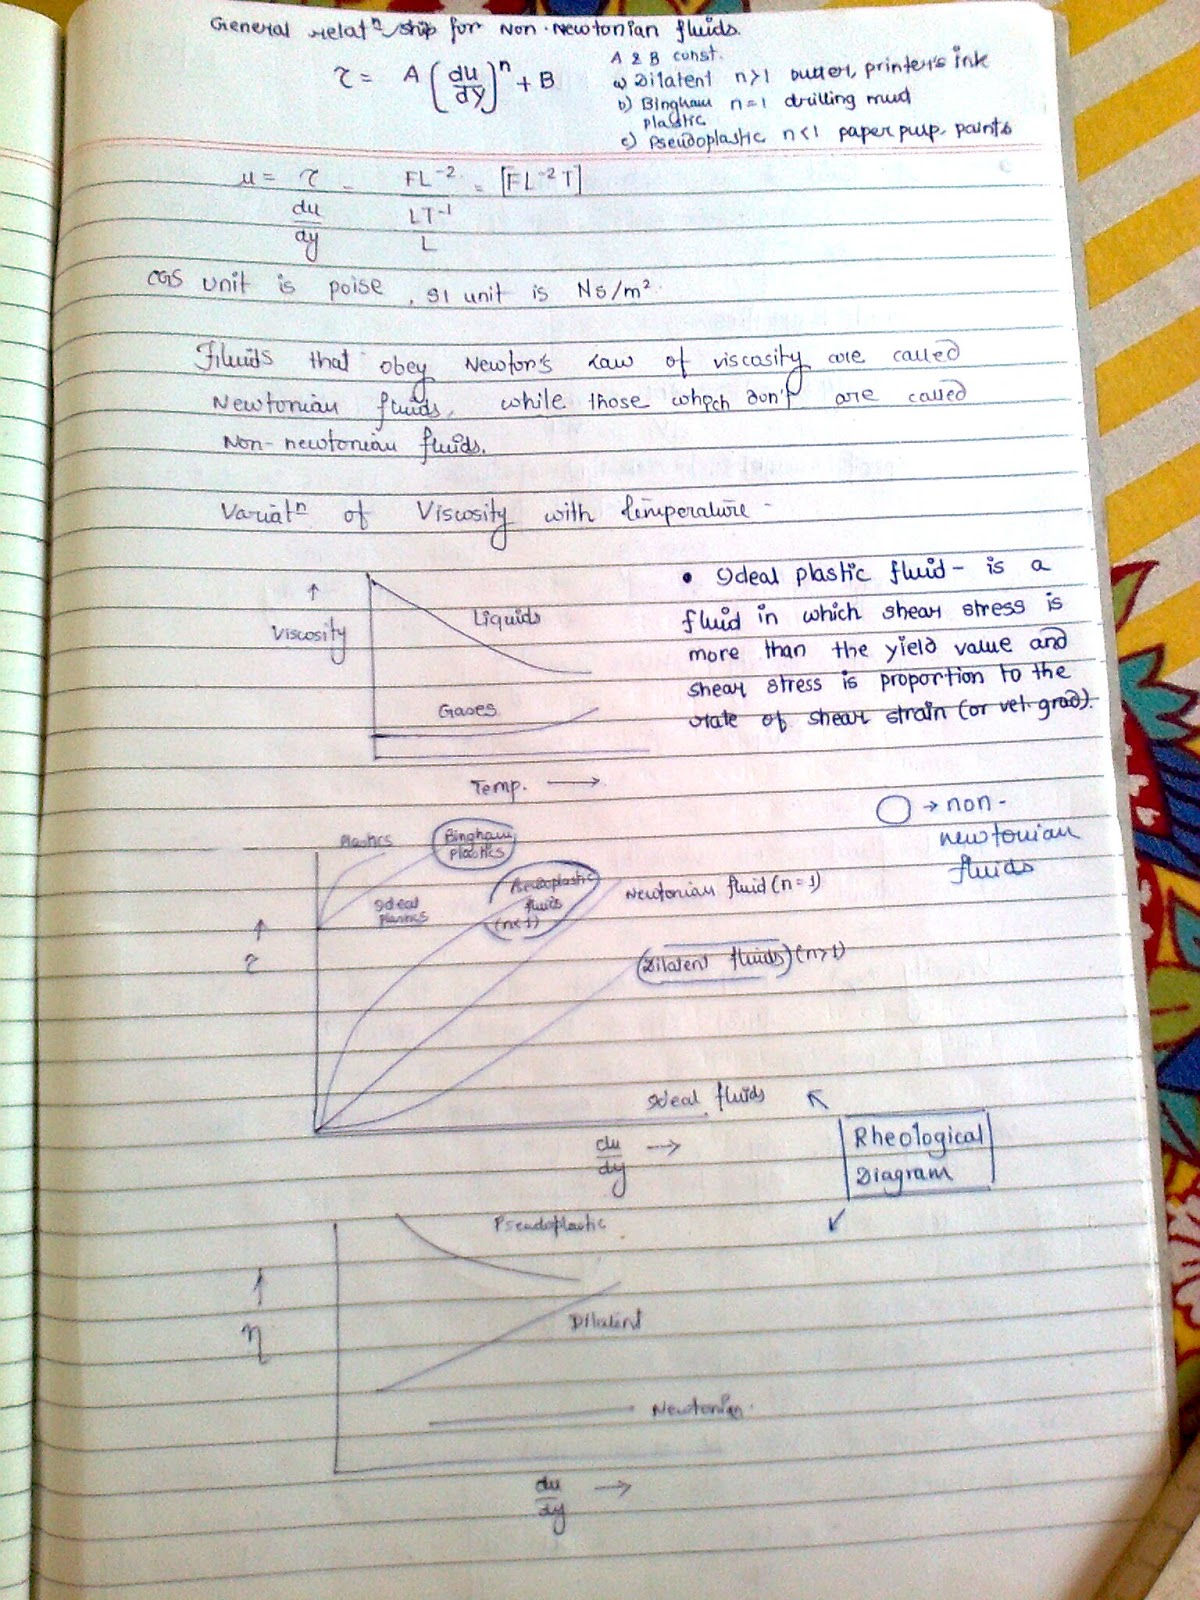 General relatⁿship for Non-Newtonian fluids.
τ = A (du/dy)ⁿ + B
A & B const.
a) Dilatent n>1 butter, printer's ink
b) Bingham n=1 drilling mud
plastic
c) Pseudoplastic n<1 paper pulp, paints
μ = τ = FL⁻² = [FL⁻²T]
du LT⁻¹
dy L
CGS unit is poise, SI unit is Ns/m².
Fluids that obey Newton's Law of viscosity are called
Newtonian fluids, while those which don't are called
Non-newtonian fluids.
Variatⁿ of Viscosity with temperature -
↑
Viscosity
Liquids
Gases
Temp. →
• Ideal plastic fluid - is a
fluid in which shear stress is
more than the yield value and
shear stress is proportion to the
rate of shear strain (or vel. grad).
○ → non-
newtonian
fluids
Plastics
Bingham
plastics
Ideal
plastics
Pseudoplastic
fluids
(n<1)
Newtonian fluid (n=1)
(Dilatent fluids) (n>1)
↑
τ
Ideal fluids
du/dy →
Rheological
Diagram
Pseudoplastic
↑
η
Dilatent
Newtonian
du/dy →